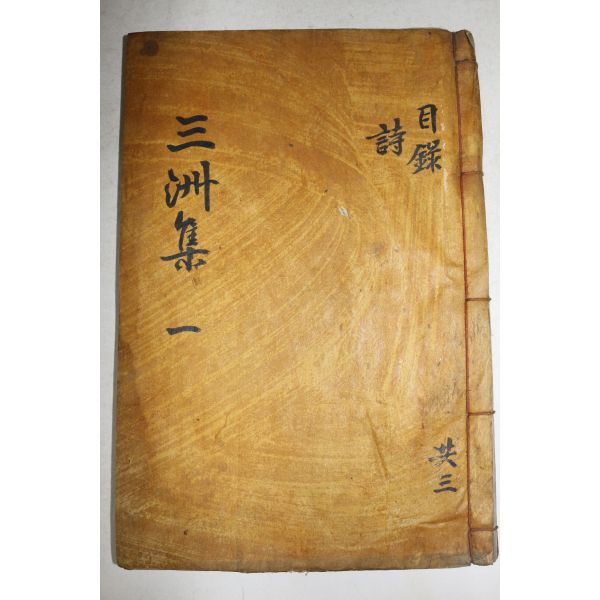 三洲集 一
目錄
詩
共三